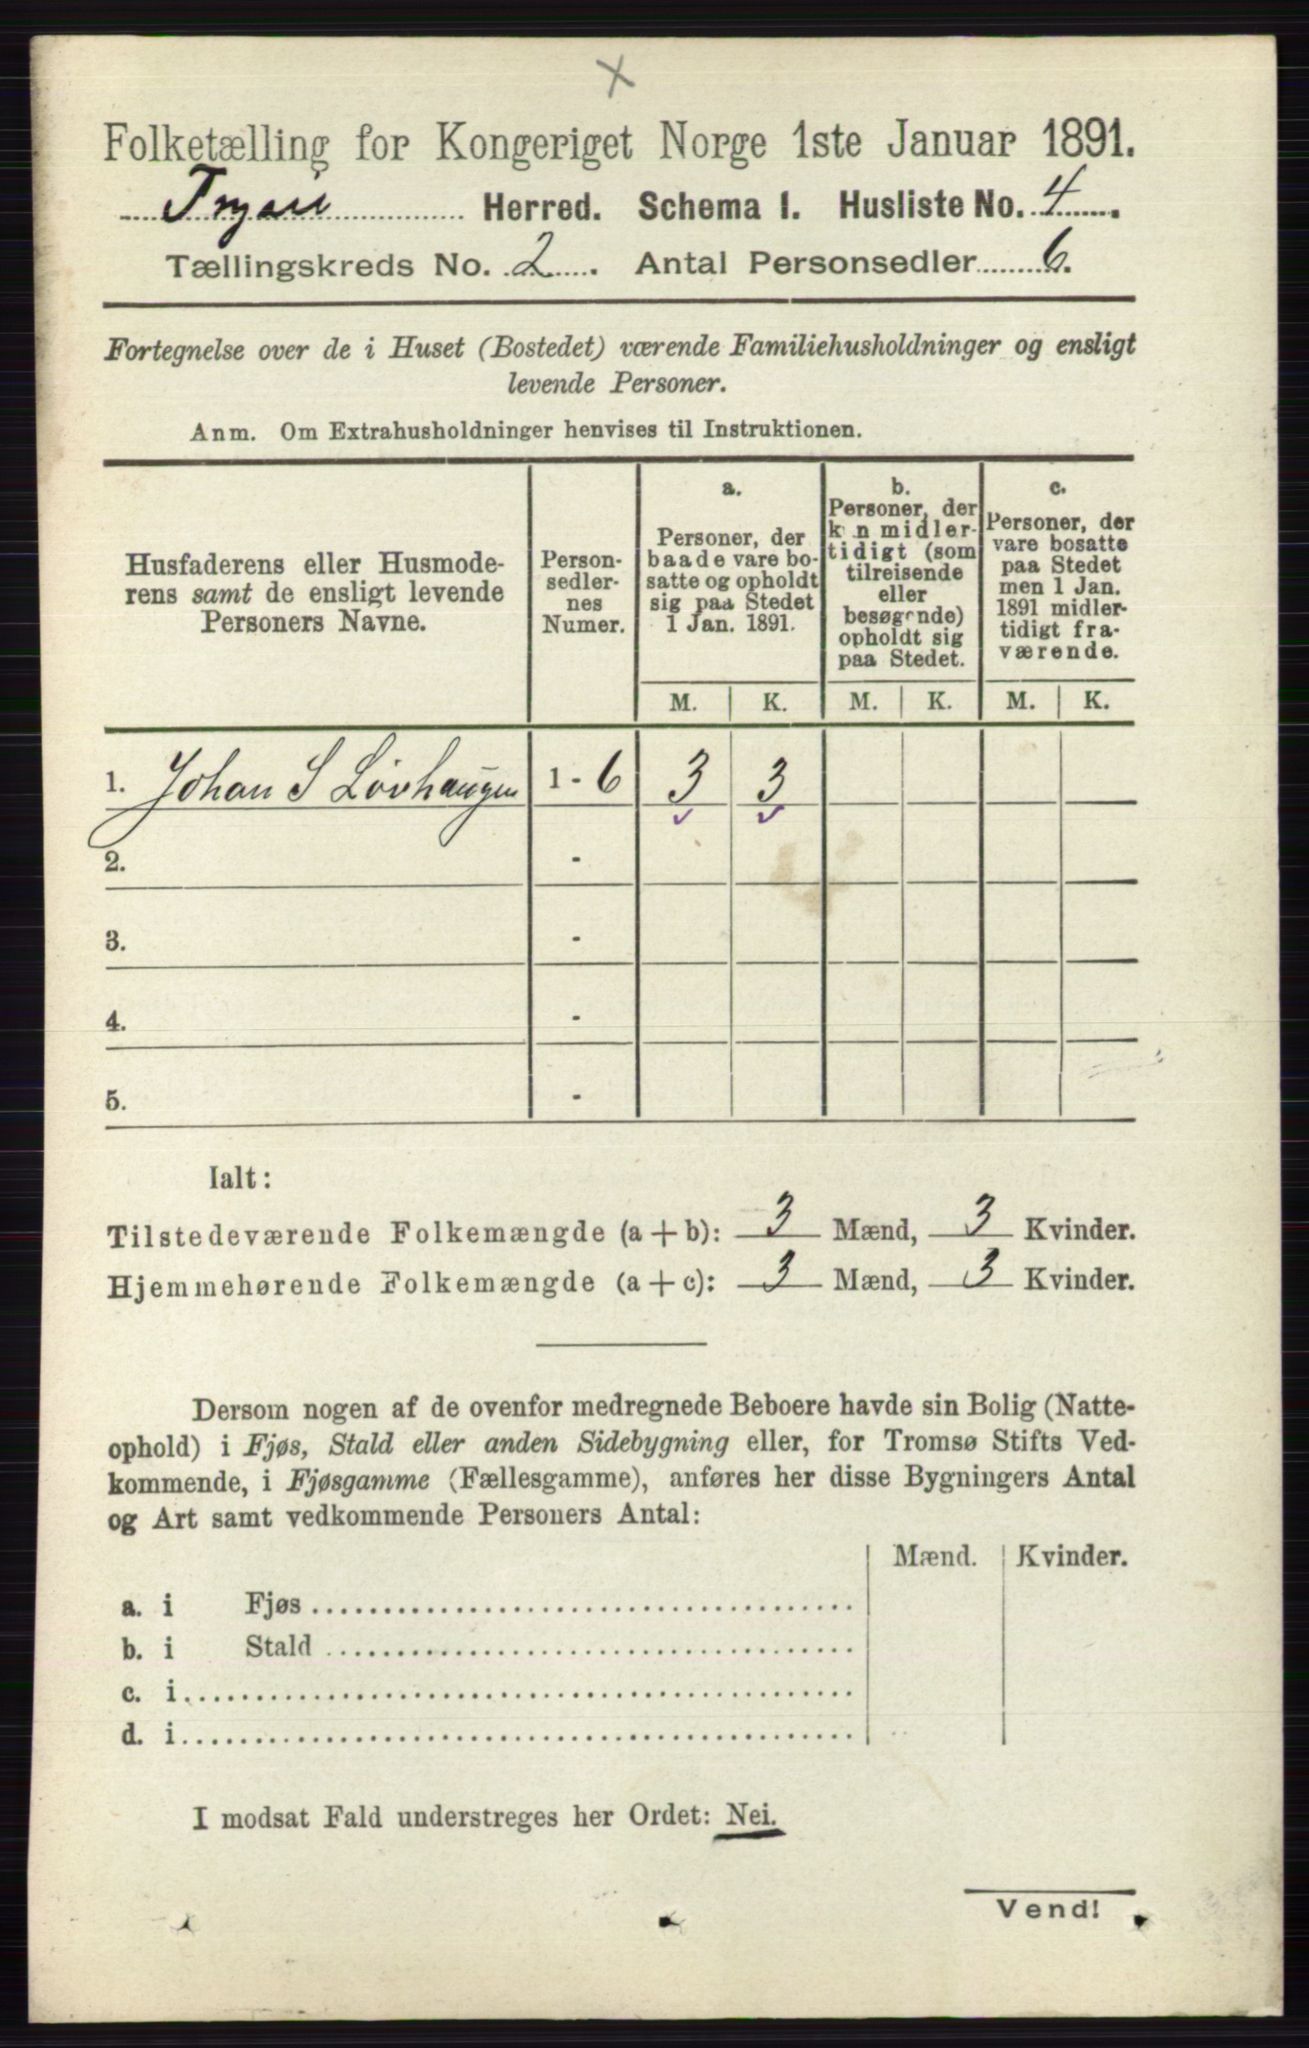 Folketælling for Kongeriget Norge 1ste Januar 1891.
Herred. Schema 1. Husliste No. 4.
Tællingskreds No. 2. Antal Personsedler 6.
Fortegnelse over de i Huset (Bostedet) værende Familiehusholdninger og ensligt
levende Personer.
Anm. Om Extrahusholdninger henvises til Instruktionen.
Husfaderens eller Husmode-
rens samt de ensligt levende
Personers Navne.
Person-
sedler-
nes
Numer.
a.
Personer, der
baade vare bo-
satte og opholdt
sig paa Stedet
1 Jan. 1891.
b.
Personer, der
k n midler-
tidigt (som
tilreisende
eller
besøgende)
opholdt sig
paa Stedet.
c.
Personer, der
vare bosatte
paa Stedet
men 1 Jan.
1891 midler-
tidigt fra-
værende.
M. K. M. K. M. K.
1. Johan S Lövhaugen 1 - 6 3 3
2. -
3. -
4. -
5. -
Ialt:
Tilstedeværende Folkemængde (a + b): 3 Mænd, 3 Kvinder.
Hjemmehørende Folkemængde (a + c): 3 Mænd, 3 Kvinder.
Dersom nogen af de ovenfor medregnede Beboere havde sin Bolig (Natte-
ophold) i Fjøs, Stald eller anden Sidebygning eller, for Tromsø Stifts Ved-
kommende, i Fjøsgamme (Fællesgamme), anføres her disse Bygningers Antal
og Art samt vedkommende Personers Antal:
Mænd. Kvinder.
a. i Fjøs
b. i Stald
c. i
d. i
I modsat Fald understreges her Ordet: Nei.
Vend!